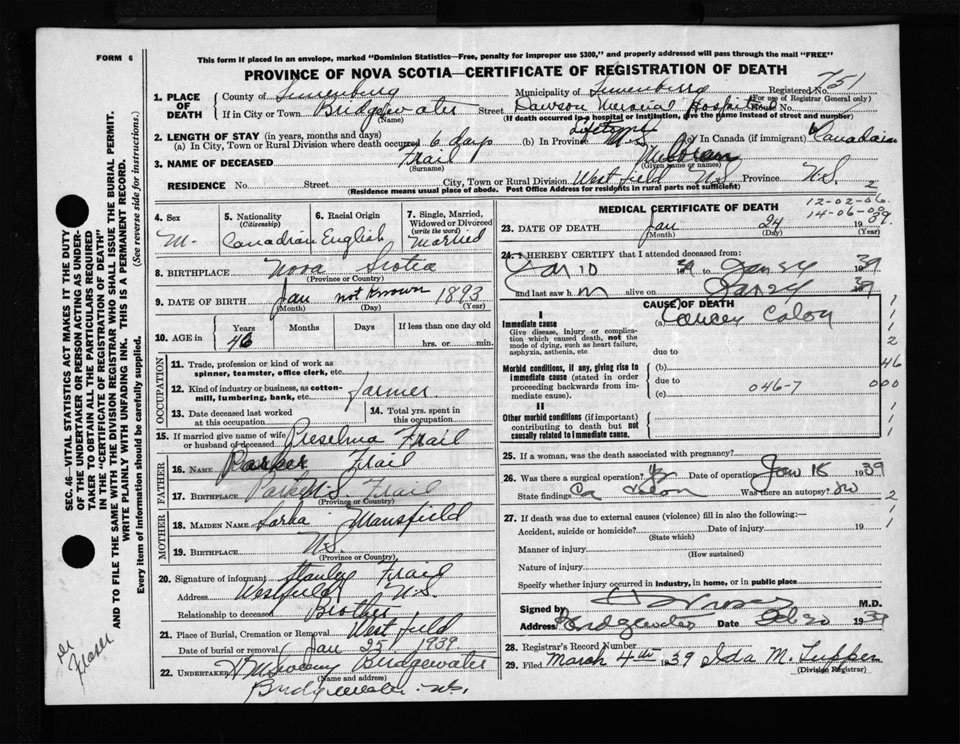 FORM 6
This form if placed in an envelope, marked "Dominion Statistics—Free, penalty for improper use $300," and properly addressed will pass through the mail "FREE"
PROVINCE OF NOVA SCOTIA—CERTIFICATE OF REGISTRATION OF DEATH
751
1. PLACE OF DEATH
County of Lunenburg Municipality of Lunenburg Registered No.
(For use of Registrar General only)
If in City or Town Bridgewater Street Dawson Memorial Hospital No.
(Name) (If death occurred in a hospital or institution, give the name instead of street and number)
2. LENGTH OF STAY (in years, months and days)
(a) In City, Town or Rural Division where death occurred 6 days (b) In Province Lifetime N.S. (c) In Canada (if immigrant) Canadian
3. NAME OF DECEASED Frail
(Surname) (Given name or names)
RESIDENCE No. Street City, Town or Rural Division Westfield N.S. Province N.S.
(Residence means usual place of abode. Post Office Address for residents in rural parts not sufficient)
2
4. Sex M.
5. Nationality (Citizenship) Canadian
6. Racial Origin English
7. Single, Married, Widowed or Divorced (write the word) Married
8. BIRTHPLACE Nova Scotia
(Province or Country)
9. DATE OF BIRTH Jan not known 1893
(Month) (Day) (Year)
10. AGE in Years Months Days If less than one day old
46 hrs. or min.
OCCUPATION
11. Trade, profession or kind of work as spinner, teamster, office clerk, etc.
12. Kind of industry or business, as cotton-mill, lumbering, bank, etc. farmer
13. Date deceased last worked at this occupation
14. Total yrs. spent in this occupation
15. If married give name of wife or husband of deceased Frail
FATHER
16. NAME Parker Frail
17. BIRTHPLACE N.S. Frail
(Province or Country)
MOTHER
18. MAIDEN NAME Mansfield
19. BIRTHPLACE N.S.
(Province or Country)
20. Signature of informant Stanley Frail
Address Westfield N.S.
Relationship to deceased Brother
21. Place of Burial, Cremation or Removal Westfield
Date of burial or removal Jan 25 1939.
22. UNDERTAKER Bridgewater
(Name and address)
Bridgewater N.S.
MEDICAL CERTIFICATE OF DEATH
12-02-06.
14-06-00
23. DATE OF DEATH Jan 24 1939.
(Month) (Day) (Year)
24. I HEREBY CERTIFY that I attended deceased from:
Jan 10 1939 to Jan 24 1939
and last saw h m alive on Jan 24 1939
CAUSE OF DEATH
I
Immediate cause (a) Cancer Colon
Give disease, injury or complication which caused death, not the mode of dying, such as heart failure, asphyxia, asthenia, etc
due to
Morbid conditions, if any, giving rise to immediate cause (stated in order proceeding backwards from immediate cause).
(b)
due to
(c) 046-7
II
Other morbid conditions (if important) contributing to death but not causally related to immediate cause.
1
1
1
2
46
000
1
1
25. If a woman, was the death associated with pregnancy?
26. Was there a surgical operation? Date of operation Jan 18 1939
State findings Ca Colon Was there an autopsy? no
2
1
1
27. If death was due to external causes (violence) fill in also the following:—
Accident, suicide or homicide? Date of injury 19
(State which)
Manner of injury
(How sustained)
Nature of injury
Specify whether injury occurred in industry, in home, or in public place
Signed by M.D.
Address Bridgewater Date Feb 20 1939
28. Registrar's Record Number
29. Filed March 4th 1939 Ida M. Tupper
(Division Registrar)
SEC. 46—VITAL STATISTICS ACT MAKES IT THE DUTY
OF THE UNDERTAKER OR PERSON ACTING AS UNDER-
TAKER TO OBTAIN ALL THE PARTICULARS REQUIRED
IN THE "CERTIFICATE OF REGISTRATION OF DEATH"
AND TO FILE THE SAME WITH THE DIVISION REGISTRAR WHO SHALL ISSUE THE BURIAL PERMIT.
WRITE PLAINLY WITH UNFADING INK. THIS IS A PERMANENT RECORD.
Every item of information should be carefully supplied. (See reverse side for instructions.)
Fraser